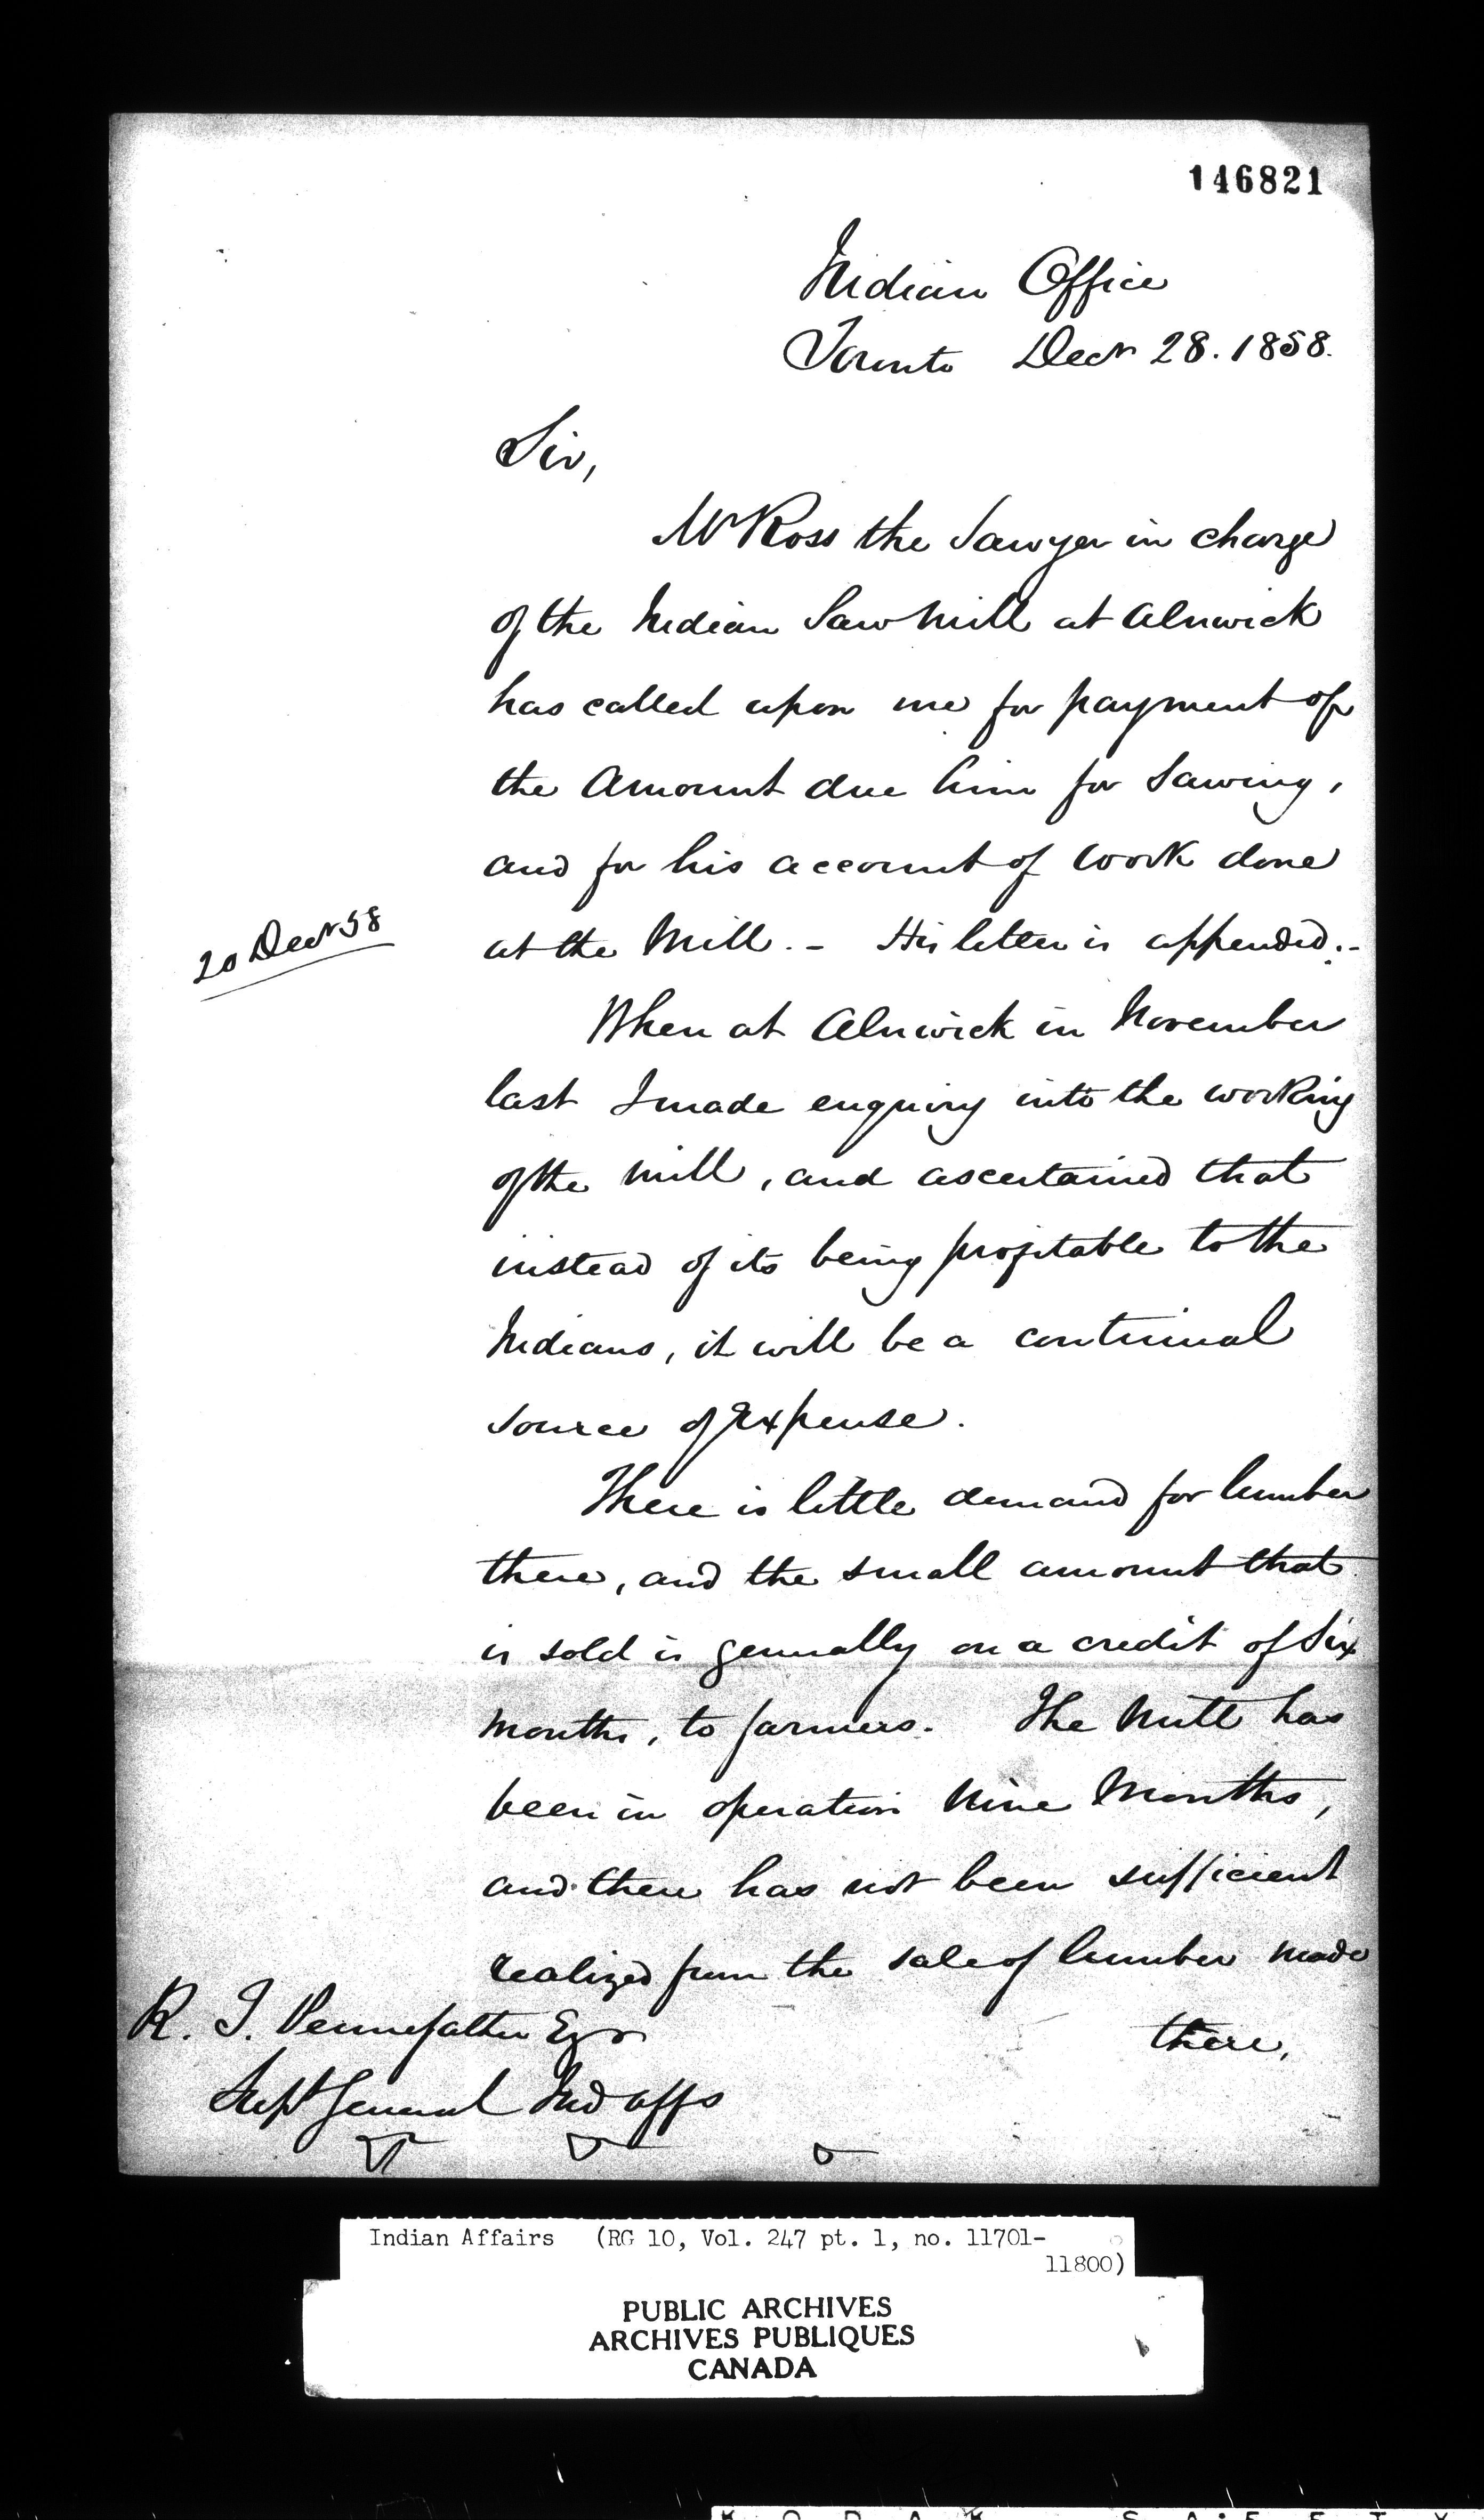 146821
Indian Office
Toronto Decr 28. 1858.
Sir,
Mr Ross the Sawyer in charge
of the Indian Saw Mill at Alnwick
has called upon me for payment of
the Amount due him for Sawing,
and for his account of Work done
20 Decr 58
at the Mill. - His letter is appended. -
When at Alnwick in November
last I made enquiry into the working
of the Mill, and ascertained that
instead of its being profitable to the
Indians, it will be a continual
source of Expense.
There is little demand for lumber
there, and the small amount that
is sold is generally on a credit of Six
Months, to farmers. The Mill has
been in operation Nine Months,
and there has not been sufficient
realized from the sale of lumber made
there,
R. T. Pennefather Esqr
Supt General Ind Affs
Indian Affairs (RG 10, Vol. 247 pt. 1, no. 11701-
11800)
PUBLIC ARCHIVES
ARCHIVES PUBLIQUES
CANADA